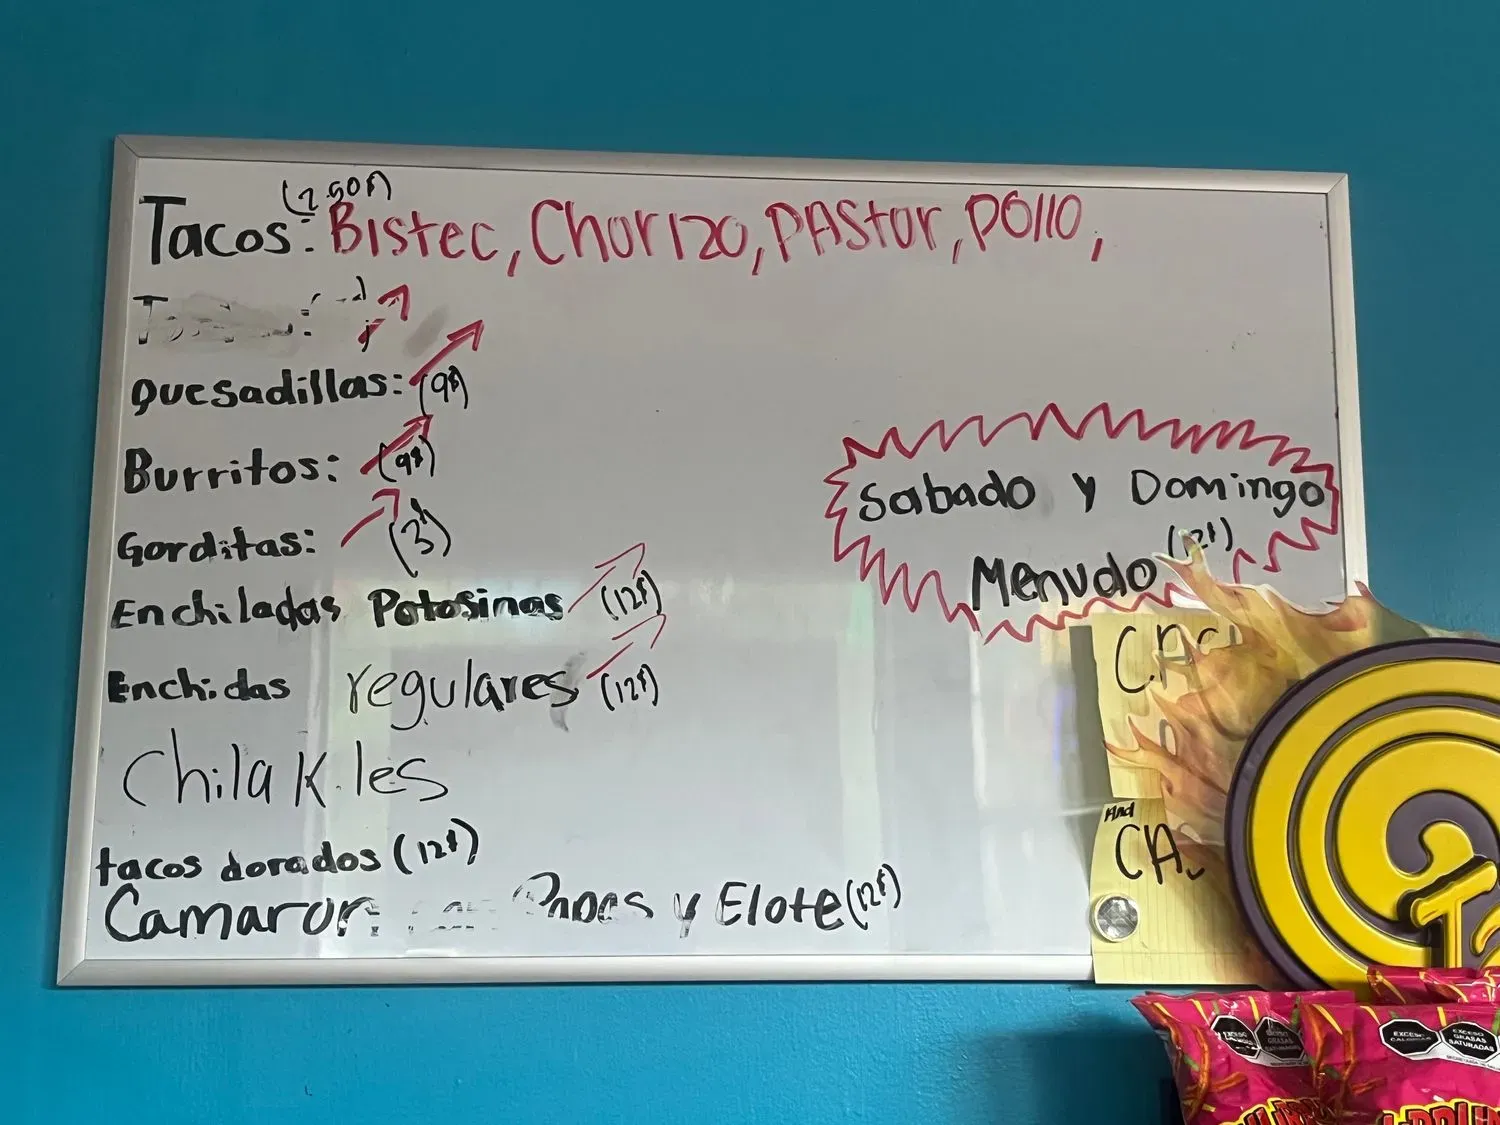 Tacos: Bistec, Chorizo, PAStor, POllO,
Quesadillas: (9$)
Burritos: (9$)
Gorditas: (3$)
Enchiladas Potosinas (12$)
Enchidas regulares (12$)
ChilaKiles
tacos dorados (12$)
Camaron con Papas y Elote (12$)
Sabado y Domingo
Menudo (12$)
And
CA
EXCESO
CALORÍAS
EXCESO
GRASAS
SATURADAS
EXCESO
CALORÍAS
EXCESO
GRASAS
SATURADAS